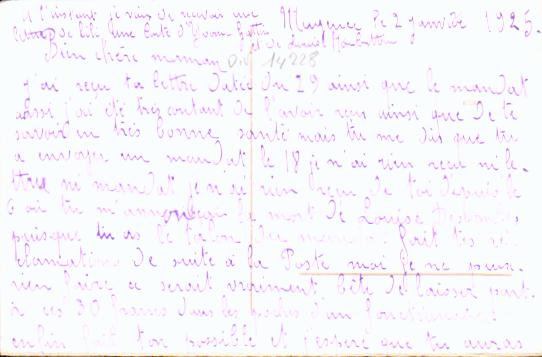 A l'instant je viens de recevoir une
lettre de Lili une carte d'Yvonne
et de
Mayence le 2 janvier 1925.
Bien chère maman
Div 14228
j'ai reçu ta lettre datée du 29 ainsi que le mandat
aussi j'ai été très content de l'avoir reçu ainsi que de te
savoir en très bonne santé mais tu me dis que tu
a envoyer un mandat le 18 je n'ai rien reçu ni le-
ttre ni mandat je n'ai rien reçu de toi depuis le
6 où tu m'annonçais la mort de Louise
puisque tu as le talon du mandat fait tes ré
clamations de suite à la Poste moi je ne puis
rien faire ce serait vraiment bête de laisser part-
ir ces 30 francs dans les poches d'un fonctionnaire
enfin fait ton possible et j'espère que tu auras